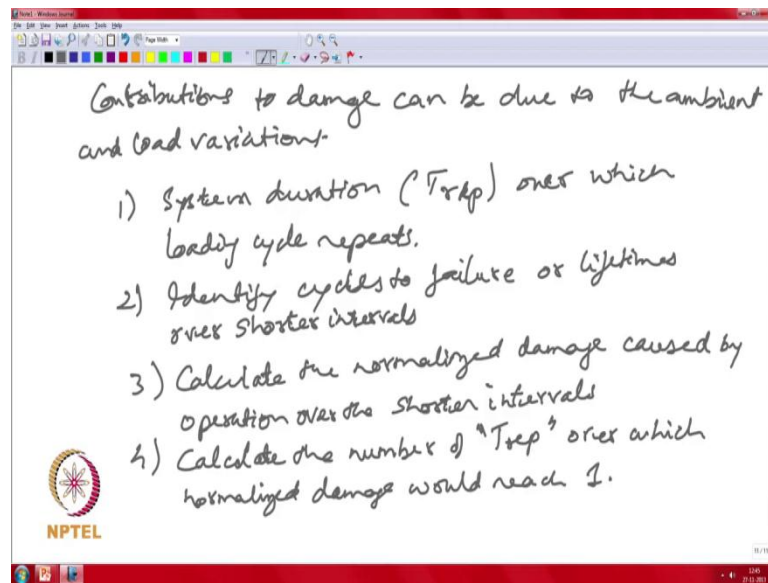 Note1 - Windows Journal
File Edit View Insert Actions Tools Help
Page Width
Contributions to damage can be due to the ambient
and load variations.
1) System duration (Trep) over which
loading cycle repeats.
2) Identify cycles to failure or lifetimes
over shorter intervals
3) Calculate the normalized damage caused by
operation over the shorter intervals
4) Calculate the number of "Trep" over which
normalized damage would reach 1.
NPTEL
12:45